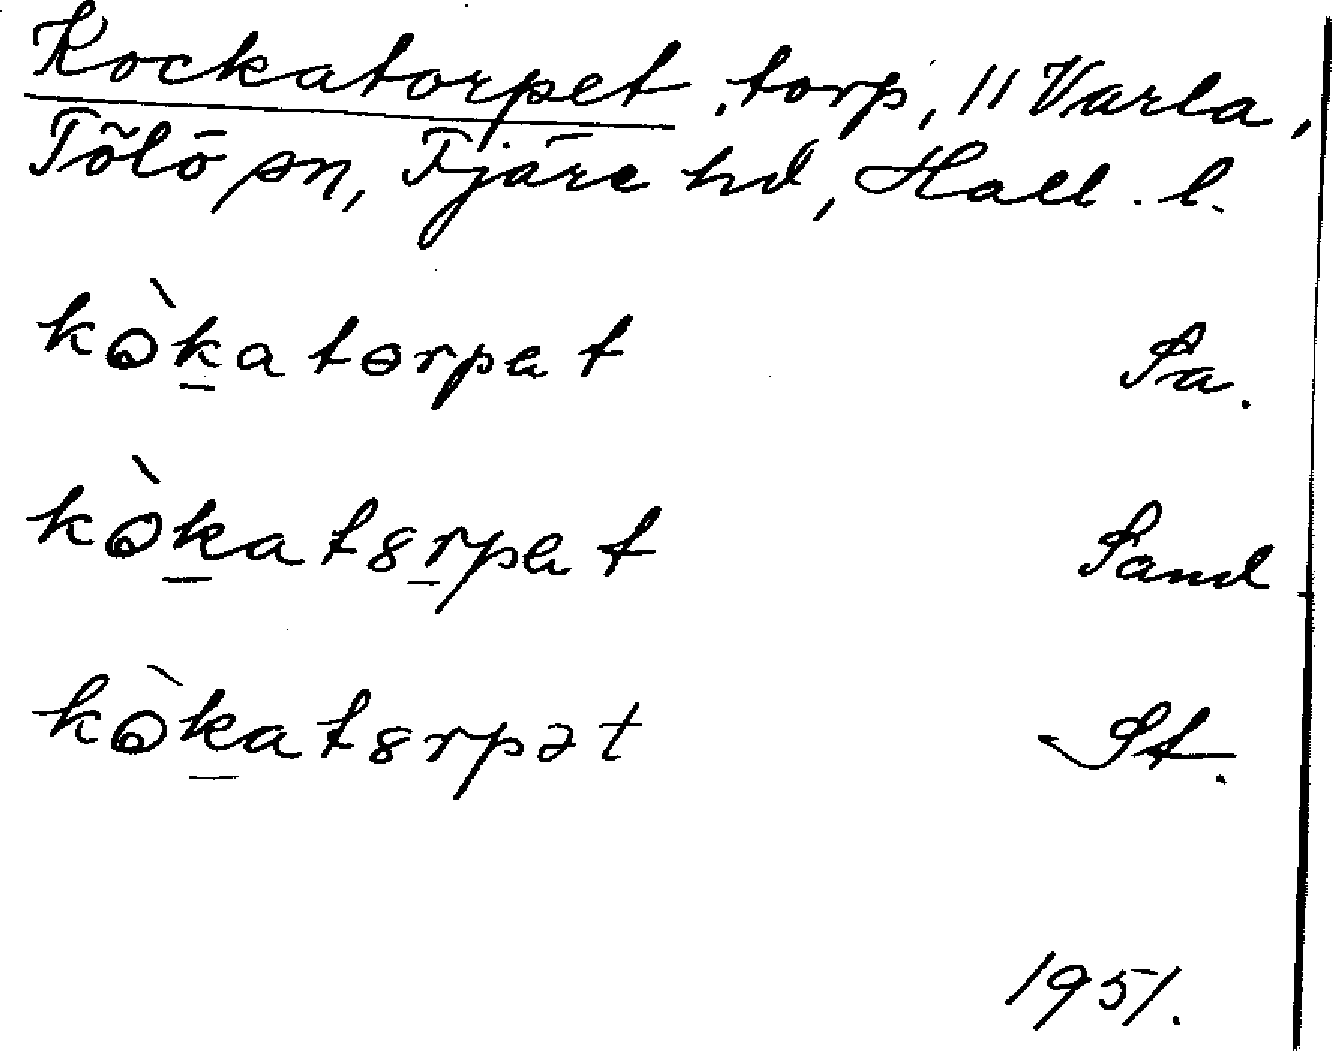 Kockatorpet, torp, 11 Varla,
Tölö sn, Fjäre hd, Hall. l.
kòkatorpet Sa.
kòkatorpet Sand
kòkatorpət St.
1951.